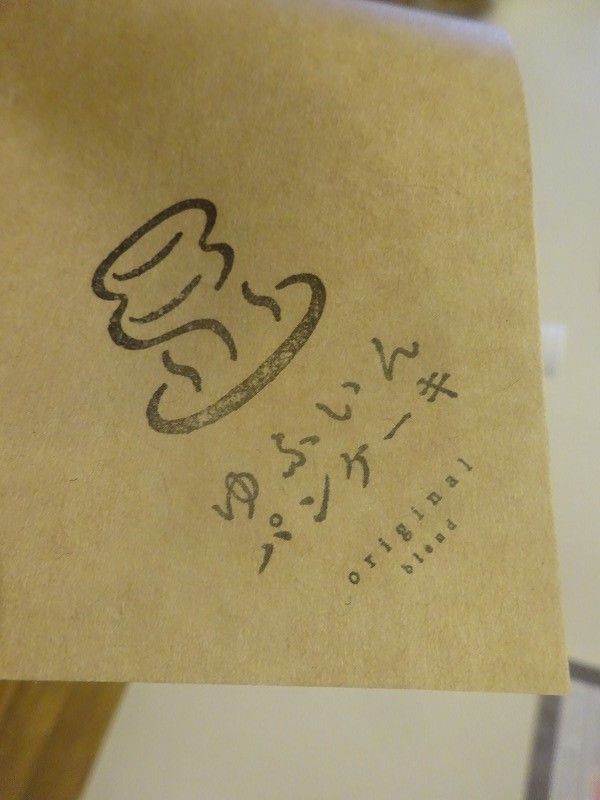 ゆふいん
パンケーキ
original
blend